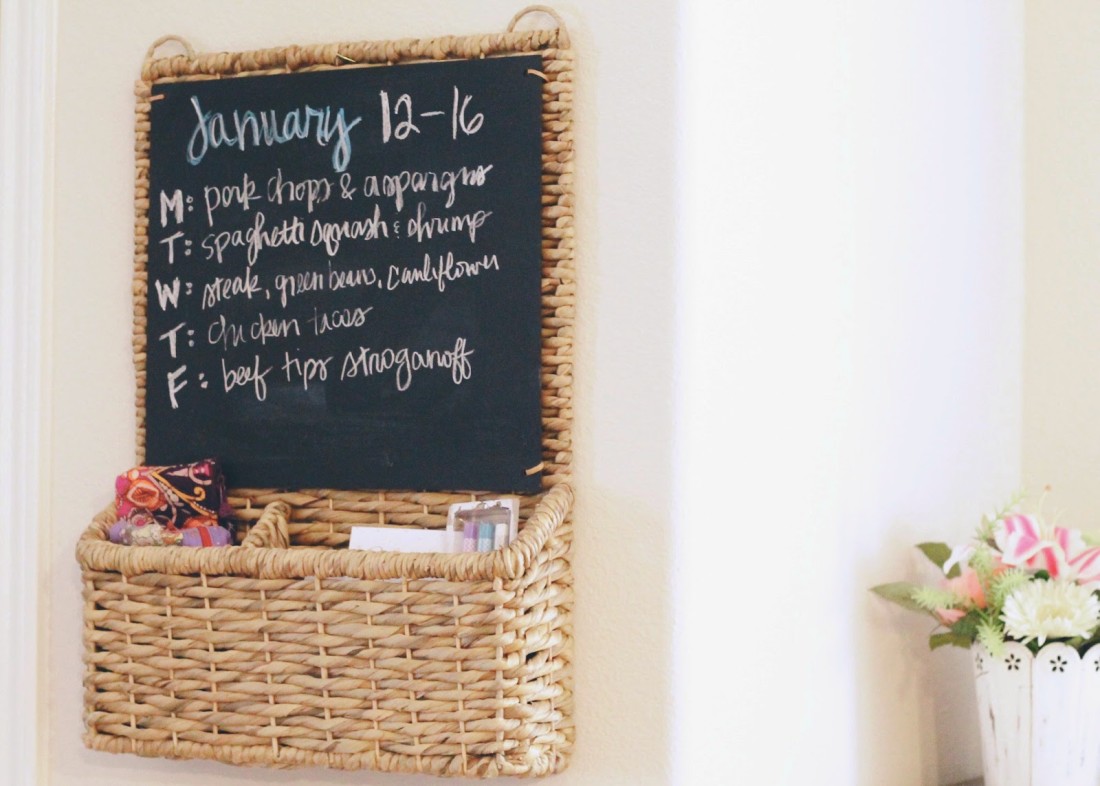 January 12-16
M: pork chops & aspargus
T: spaghetti squash & shrimp
W: steak, green beans, cauliflower
T: chicken tacos
F: beef tips stroganoff